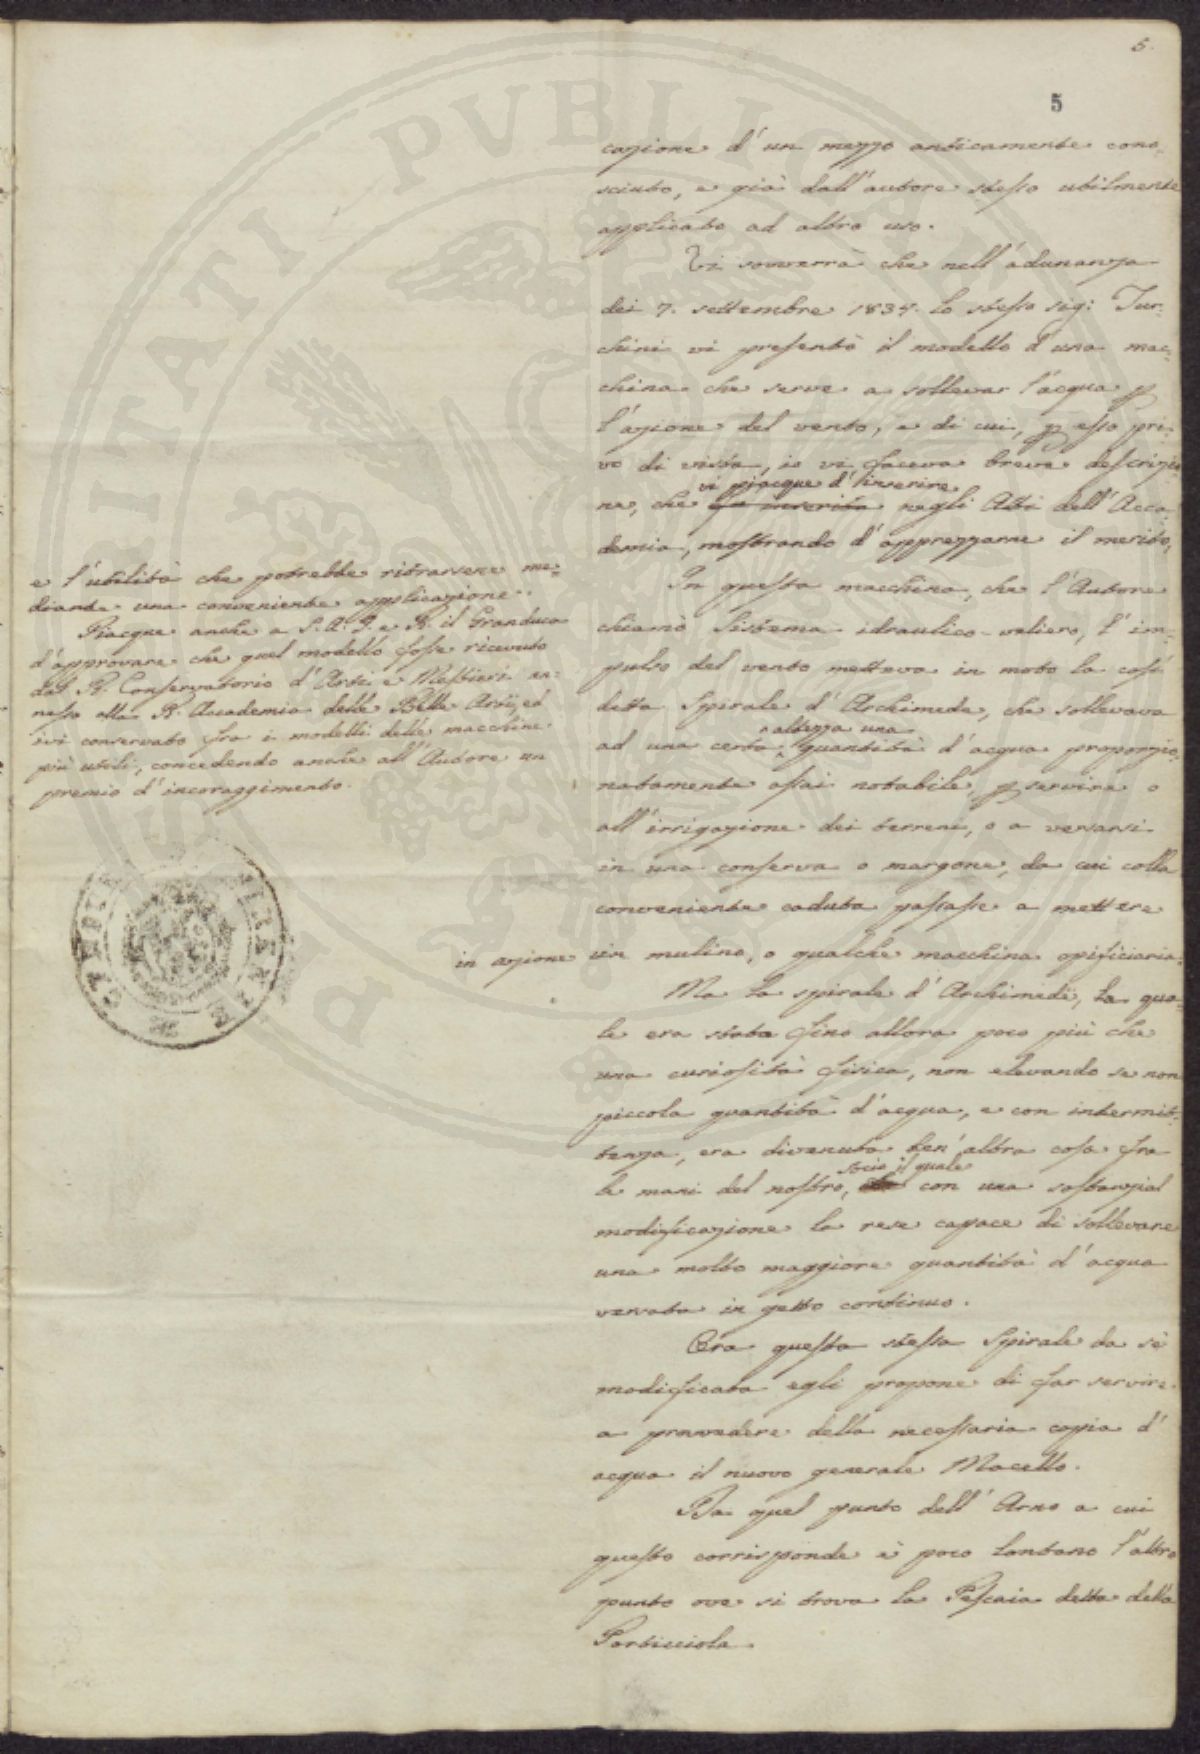 5.
5
cazione d'un mezzo anticamente cono-
sciuto, e già dall'autore stesso utilmente
applicato ad altro uso.
Vi sovverrà che nell'adunanza
dei 7. settembre 1834. lo stesso sig: Tur-
chini vi presentò il modello d'una mac-
china che serve a sollevar l'acqua p
l'azione del vento, e di cui, p esso pri-
vo di vista, io vi faceva breve descrizio
vi piacque d'inserire
ne, che fu inserita negli Atti dell'Acca
demia, mostrando d'apprezzarne il merito,
e l'utilità che potrebbe ritrarsene me-
diante una conveniente applicazione.
Piacque anche a S. A. I. e R. il Granduca
d'approvare che quel modello fosse ricevuto
dal R. Conservatorio d'Arti e Mestieri an-
nesso alla R. Accademia delle Belle Arti, ed
ivi conservato fra i modelli delle macchine
più utili, concedendo anche all'Autore un
premio d'incoraggimento.
In questa macchina, che l'Autore
chiamò Sistema idraulico-veliero, l'im-
pulso del vento metteva in moto la così
detta Spirale d'Archimede, che sollevava
altezza una
ad una certa quantità d'acqua proporzio-
natamente assai notabile, p servire o
all'irrigazione dei terreni, o a versarsi
in una conserva o margone, da cui colla
conveniente caduta passasse a mettere
in azione un mulino, o qualche macchina opificiaria.
Ma la spirale d'Archimede, la qua-
le era stata fino allora poco più che
una curiosità fisica, non elevando se non
piccola quantità d'acqua, e con intermit-
tenza, era divenuta ben'altra cosa fra
socio il quale
le mani del nostro, con una sostanzial
modificazione la rese capace di sollevare
una molto maggiore quantità d'acqua
versata in getto continuo.
Ora questa stessa Spirale da sè
modificata egli propone di far servire
a provvedere della necessaria copia d'
acqua il nuovo generale Macello.
Da quel punto dell'Arno a cui
questo corrisponde è poco lontano l'altro
punto ove si trova la Pescaia detta della
Porticciola